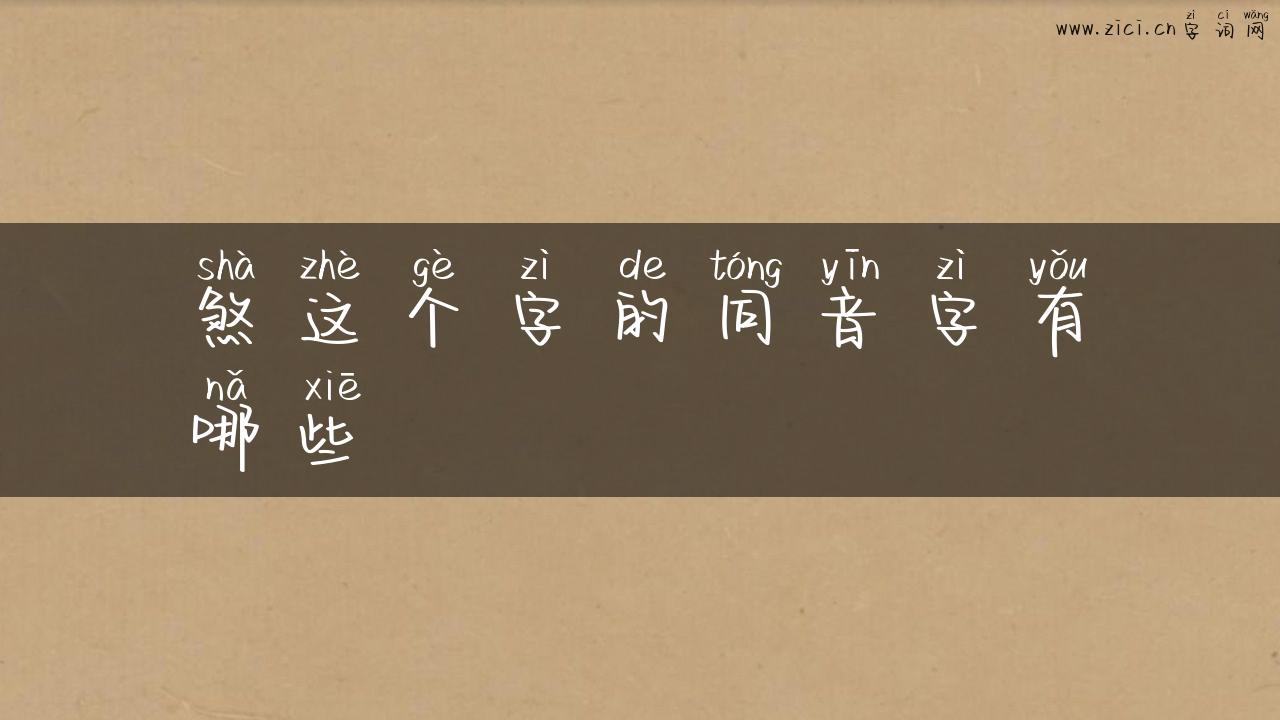 zì cí wǎng
www.zici.cn 字 词 网
shà zhè gè zì de tóng yīn zì yǒu
煞 这 个 字 的 同 音 字 有
nǎ xiē
哪 些